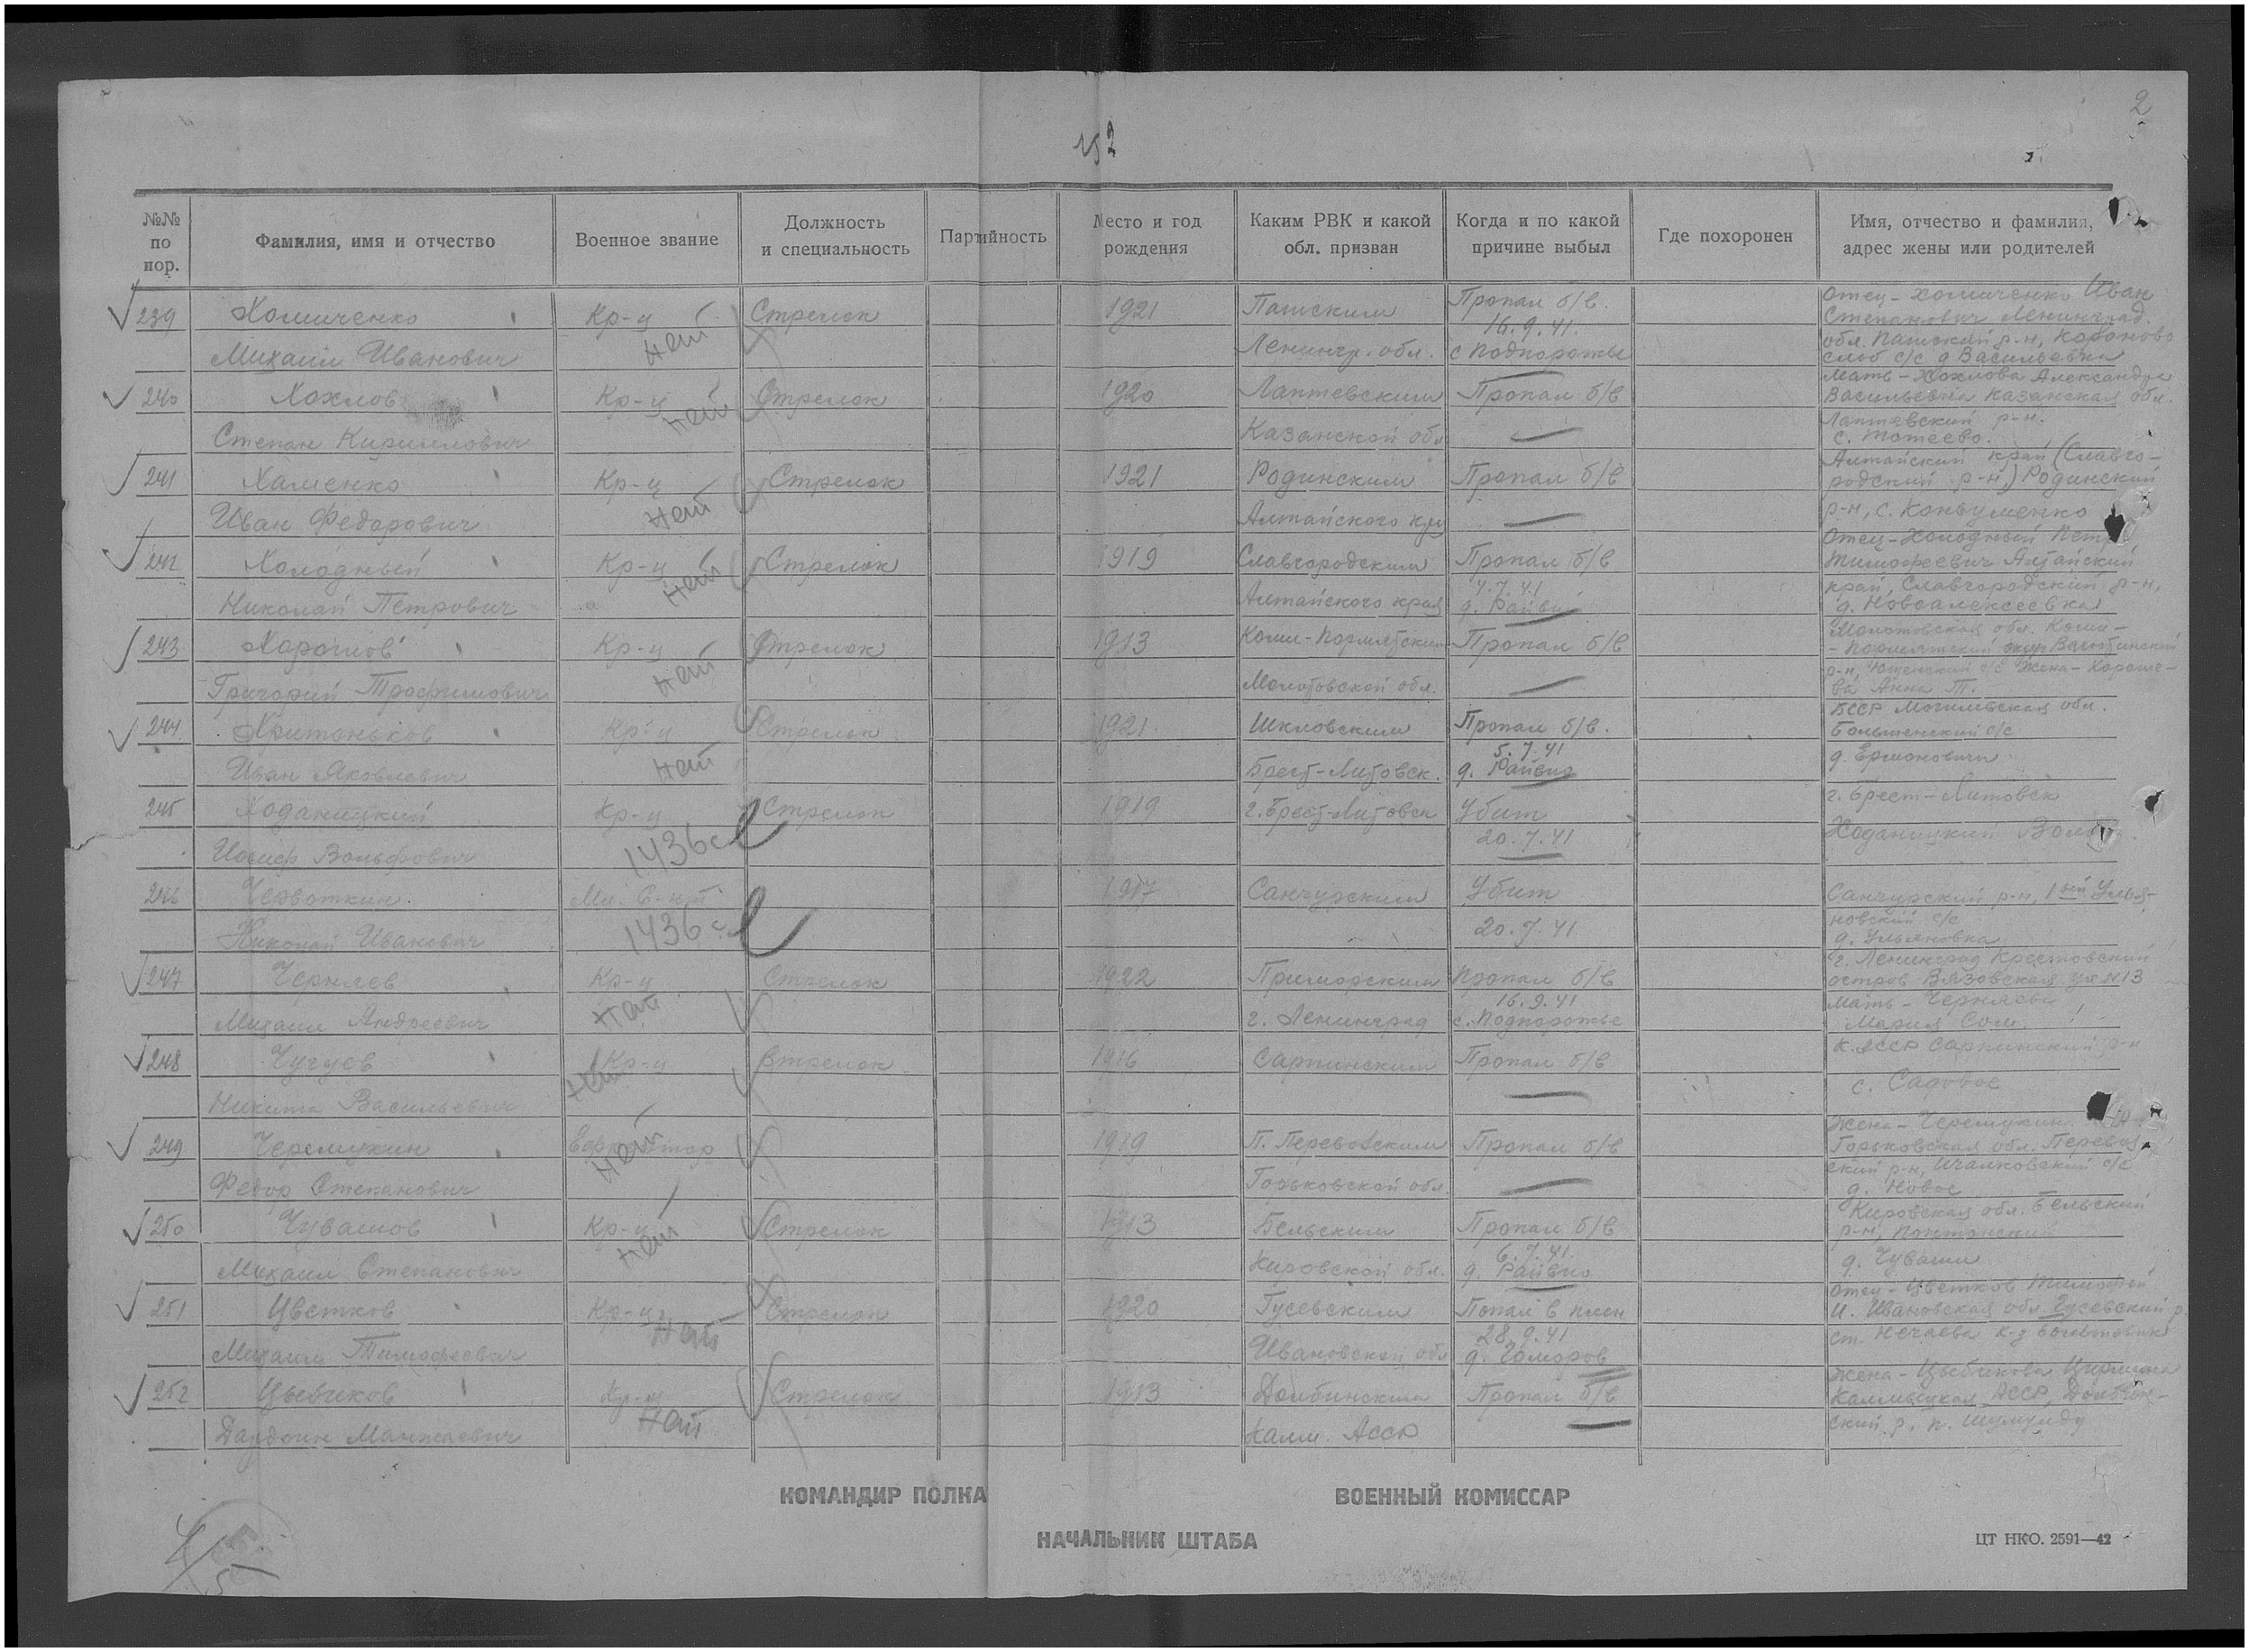 2
152
№№ по пор.
Фамилия, имя и отчество
Военное звание
Должность и специальность
Партийность
Место и год рождения
Каким РВК и какой обл. призван
Когда и по какой причине выбыл
Где похоронен
Имя, отчество и фамилия, адрес жены или родителей
239 Хомиченко Кр-ц Стрелок 1921 Пашским Пропал б/в. Отец - Хомиченко Иван
нет 16.9.41. Степанович Ленинград.
Михаил Иванович Ленингр. обл. с Подпорожье обл. Пашский р-н,
с/с д Васильевка
240 Хохлов Кр-ц Стрелок 1920 Лаптевским Пропал б/в Мать - Хохлова Александра
нет Васильевна Казанская обл.
Степан Кириллович Казанской обл Лаптевский р-н.
с.
241 Хаменко Кр-ц Стрелок 1921 Родинским Пропал б/в Алтайский край (Славго-
нет родский р-н,) Родинский
Иван Федорович Алтайского кра р-н, с.
242 Холодный Кр-ц Стрелок 1919 Славгородским Пропал б/в Отец - Холодный Петр
нет 4.7.41 Тимофеевич Алтайский
Николай Петрович Алтайского края д. Райвио край, Славгородский р-н,
д. Новоалексеевка
243 Хорошов Кр-ц Стрелок 1913 Коми-Пермятским Пропал б/в Молотовская обл. Коми-
нет - Пермятский окр
Григорий Трофимович Молотовской обл. р-н, с/с Жена - Хороше-
ва Анна Т.
244 Хритоньков Кр-ц Стрелок 1921 Шкловским Пропал б/в. БССР Могилевская обл.
нет 5.7.41 с/с
Иван Яковлевич Брест-Литовск. д. Райвио д. Ермоновичи
245 Ходаницкий Кр-ц Стрелок 1919 г. Брест-Литовск Убит г. Брест-Литовск
1436с 20.7.41 Ходаницкий
Иосиф Вольфович
246 Червоткин. Мл. С-нт 1917 Санчурским Убит Санчурский р-н, 1ый Улья-
1436с 20.7.41 новский с/с
Николай Иванович д. Ульяновка
247 Черняев Кр-ц Стрелок 1922 Приморским Пропал б/в г. Ленинград Крестовский
нет 16.9.41 остров Вязовская ул N13
Михаил Андреевич г. Ленинград с. Подпорожье Мать - Черняева
Мария
248 Чугуев Кр-ц Стрелок 1916 Сарпинским Пропал б/в К. АССР Сарпинский р-н
нет с. Садовое
Никита Васильевич
249 Черемухин Ефрейтор 1919 П. Перевозским Пропал б/в Жена - Черемухин
нет Горьковская обл. Перевоз-
Федор Степанович Горьковской обл. ский р-н, Ичалковский с/с
д. Новое
250 Чувашов Кр-ц Стрелок 1913 Бельским Пропал б/в Кировская обл. Бельский
нет 6.7.41. р-н,
Михаил Степанович Кировской обл. д. Райвио д. Чуваши
251 Цветков Кр-ц Стрелок 1920 Гусевским Попал в плен Отец - Цветков Тимофей
нет 28.9.41 И. Ивановская обл Гусевский р
Михаил Тимофеевич Ивановской обл д. Гоморов ст. Нечаева к-з Большевик
252 Цебиков Кр-ц Стрелок 1913 Долбинским Пропал б/в Жена - Цебикова
нет Калмыцкая АССР, Долбин-
Манжаевич Калм. АССР ский р.
КОМАНДИР ПОЛКА
ВОЕННЫЙ КОМИССАР
НАЧАЛЬНИК ШТАБА
ЦТ НКО. 2591—42